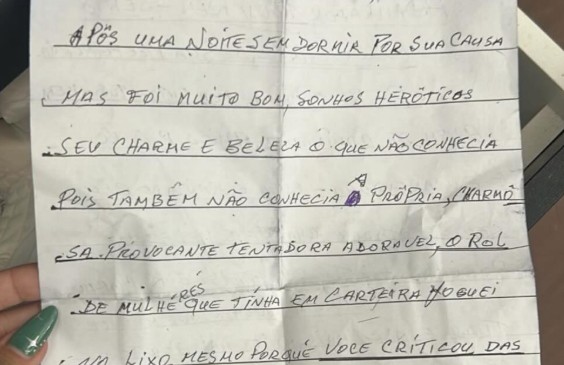 APÓS UMA NOITE SEM DORMIR POR SUA CAUSA
MAS FOI MUITO BOM, SONHOS HERÓTICOS
SEU CHARME E BELEZA O QUE NÃO CONHECIA
POIS TAMBÉM NÃO CONHECIA A PRÓPRIA, CHARMÔ
SA. PROVOCANTE TENTADORA ADORAVEL, O ROL
DE MULHÉRES QUE TINHA EM CARTEIRA JOGUEI
LIXO MESMO PORQUÊ VOCE CRÍTICOU, DAS